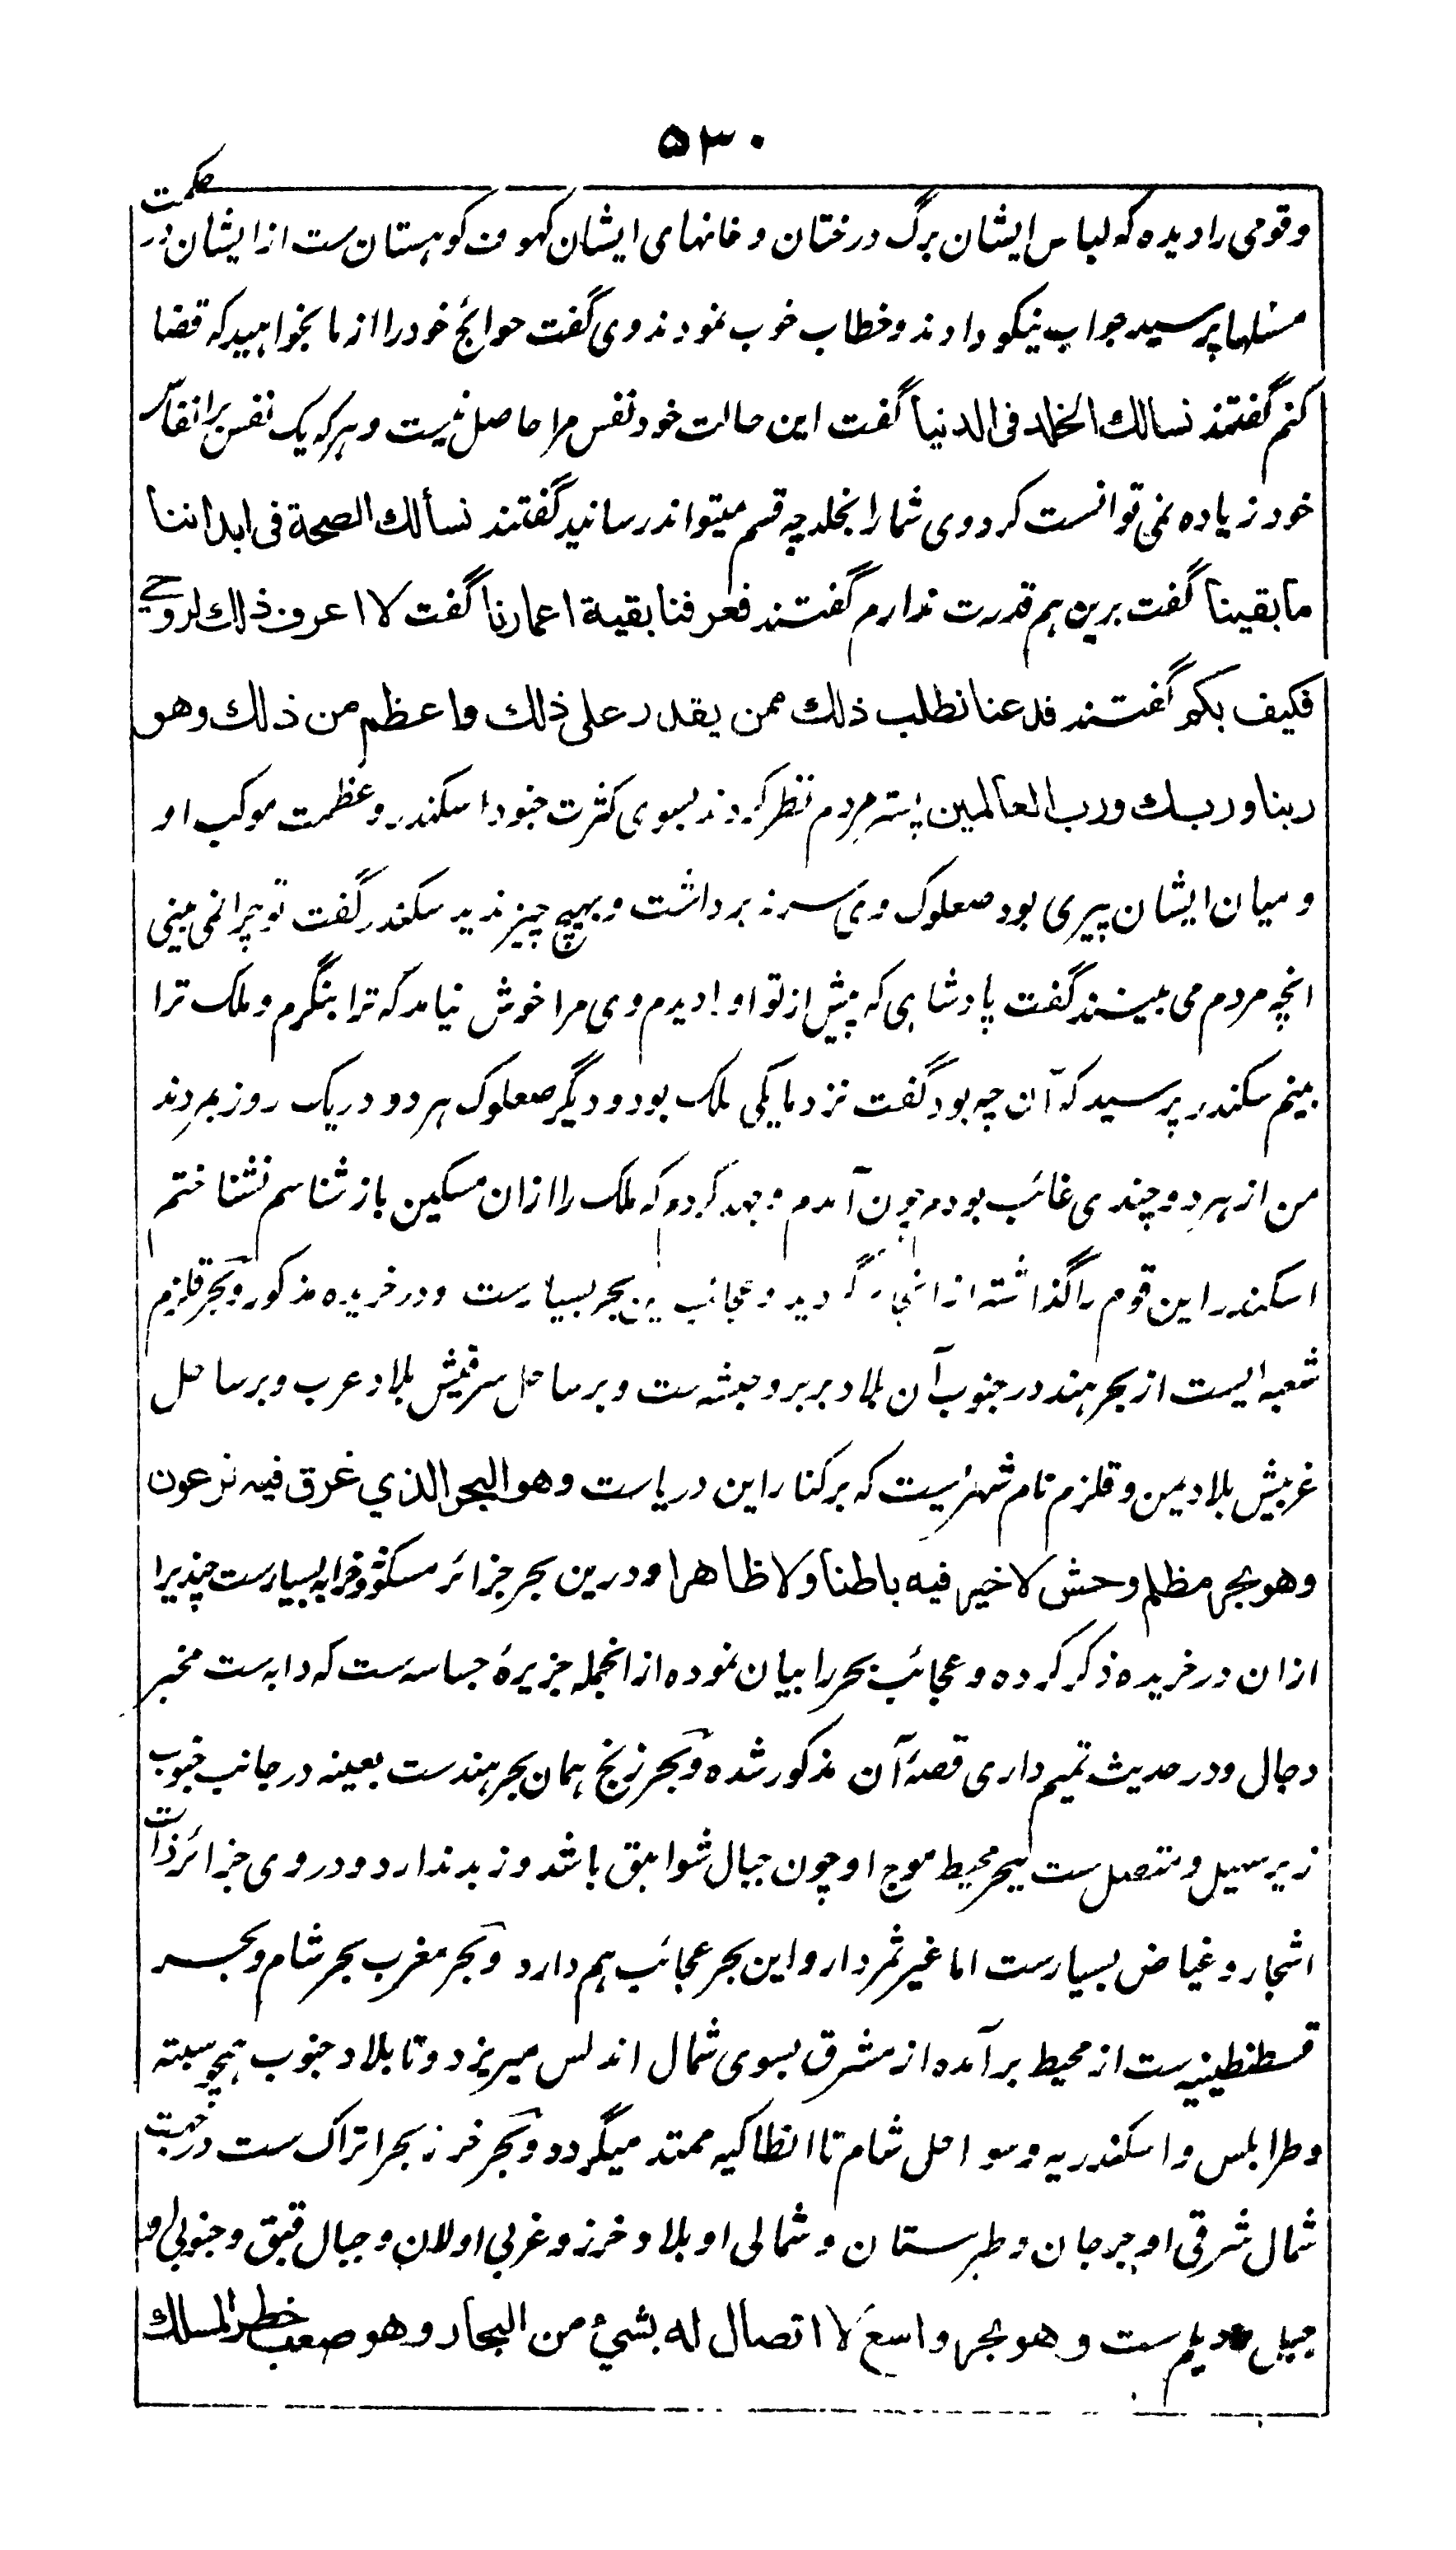 ۵۳۰
وقومی را دیده که لباس ایشان برگ درختان و خانهای ایشان کهوف کوهستان ست از ایشان در حکمت
مسئلها پرسید جواب نیکو دادند و خطاب خوب نمودند وی گفت حوائج خود را از ما بخواهید که قضا
کنم گفتند نسالك الخلد فی الدنیا گفت این حالت خود نفس مرا حاصل نیست و هر که یک نفس بر انفاس
خود زیاده نمی توانست کرد وی شما را بخلد چه قسم میتواند رسانید گفتند نسألك الصحة فی ابداننا
ما بقینا گفت برین هم قدرت ندارم گفتند فعرفنا بقیة اعمارنا گفت لا اعرف ذلك لروحی
فکیف بکم گفتند فدعنا نطلب ذلك ممن یقدر علی ذلك واعظم من ذلك وهو
ربنا وربك ورب العالمین پستر مردم نظر کردند بسوی کثرت جنود اسکندر و عظمت موکب او
و میان ایشان پیری بود صعلوک وی سر نه برداشت و بهیچ چیز ندید سکندر گفت تو چرا نمی بینی
انچه مردم می بینند گفت پادشاهی که پیش از تو او را دیدم وی مرا خوش نیامد که ترا بنگرم و ملک ترا
بینم سکندر پرسید که آن چه بود گفت نزد ما یکی ملک بود و دیگر صعلوک هر دو در یک روز بمردند
من از هر دو چندی غائب بودم چون آمدم و جهد کردم که ملک را از ان مسکین باز شناسم نشناختم
اسکندر این قوم را گذاشته از انجا برگردید و عجائب این بحر بسیارست و در خریده مذکور و بحر قلزم
شعبه ایست از بحر هند در جنوب آن بلاد بربر و حبشه ست و بر ساحل سرقیش بلاد عرب و بر ساحل
غربیش بلاد یمن و قلزم نام شهریست که بر کنار این دریاست وهو البحر الذي غرق فیه فرعون
وهو بحر مظلم وحش لا خیر فیه باطنا ولا ظاهرا و درین بحر جزائر مسکونه و خرابه بسیارست چندیرا
از ان در خریده ذکر کرده و عجائب بحر را بیان نموده از انجمله جزیرۀ جساسه ست که دابه ست مخبر
دجال و در حدیث تمیم داری قصۀ آن مذکور شده و بحر زنج همان بحر هندست بعینه در جانب جنوب
زیر سهیل و متصل ست ببحر محیط موج او چون جبال شواهق باشد و زبد ندارد و در وی جزائر ذات
اشجار و غیاض بسیارست اما غیر ثمردار و این بحر عجائب هم دارد و بحر مغرب بحر شام و بحر
قسطنطینیه ست از محیط برآمده از مشرق بسوی شمال اندلس میریزد و تا بلاد جنوب همچو سبته
و طرابلس و اسکندریه و سواحل شام تا انطاکیه ممتد میگردد و بحر خزر بحر اتراک ست در جهت
شمال شرقی او جرجان و طبرستان و شمالی او بلاد خرز و غربی او لان و جبال قبق و جنوبی او
جیل و دیلم ست وهو بحر واسع لا اتصال له بشيء من البحار وهو صعب خطر المسلك